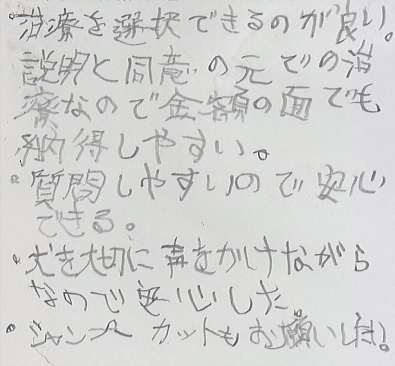 ・治療を選択できるのが良い。
説明と同意の元での治
療なので金額の面でも
納得しやすい。
・質問しやすいので安心
できる。
・犬を大切に声をかけながら
なので安心した。
・シャンプーカットもお願いしたい。